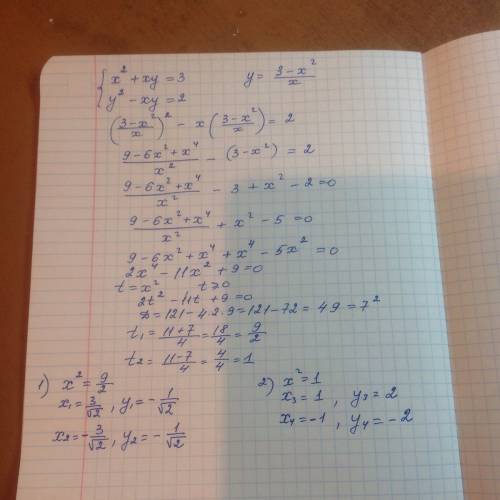 { x² + xy = 3        y = (3 − x²)/x
{ y² − xy = 2
((3 − x²)/x)² − x((3 − x²)/x) = 2
(9 − 6x² + x⁴)/x² − (3 − x²) = 2
(9 − 6x² + x⁴)/x² − 3 + x² − 2 = 0
(9 − 6x² + x⁴)/x² + x² − 5 = 0
9 − 6x² + x⁴ + x⁴ − 5x² = 0
2x⁴ − 11x² + 9 = 0
t = x²    t ⩾ 0
2t² − 11t + 9 = 0
D = 121 − 4·2·9 = 121 − 72 = 49 = 7²
t₁ = (11 + 7)/4 = 18/4 = 9/2
t₂ = (11 − 7)/4 = 4/4 = 1
1) x² = 9/2
x₁ = 3/√2 , y₁ = − 1/√2
x₂ = − 3/√2 , y₂ = − 1/√2
2) x² = 1
x₃ = 1 , y₃ = 2
x₄ = −1 , y₄ = −2